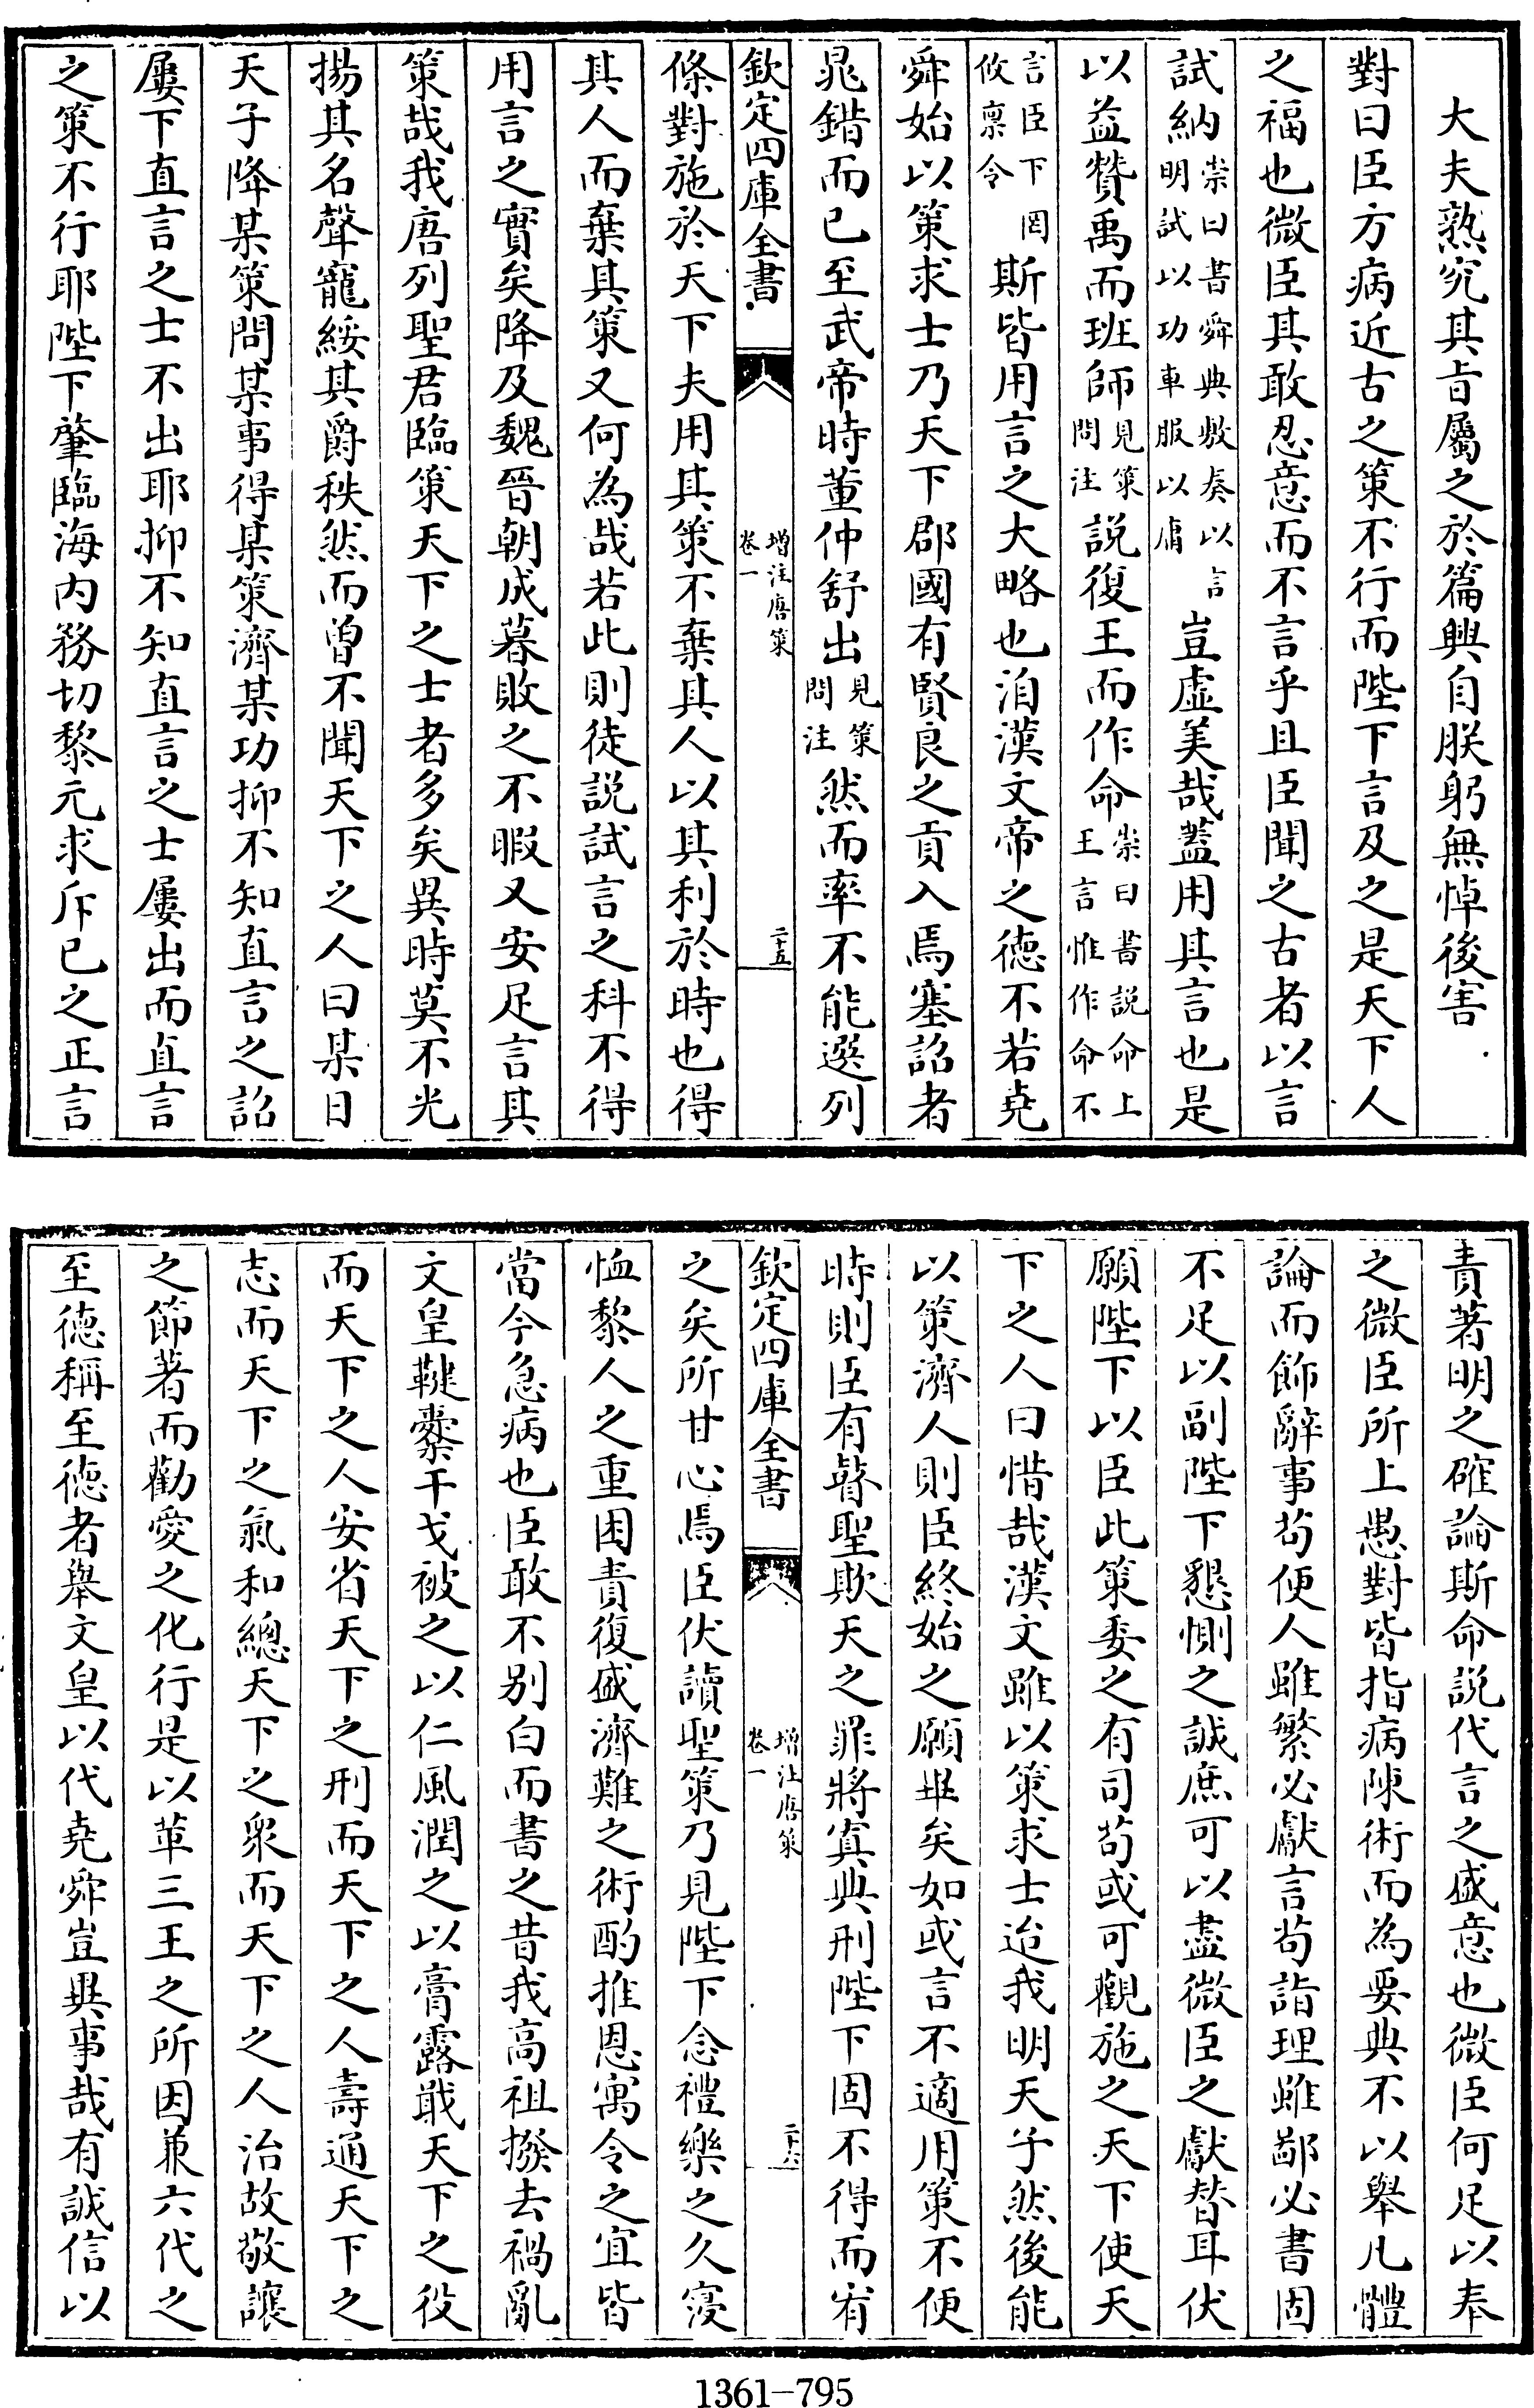 大夫熟究其㫖屬之於篇興自朕躬無悼後害
對曰臣方病近古之策不行而陛下言及之是天下人
之福也微臣其敢忍意而不言乎且臣聞之古者以言
試納崇曰書舜典敷奏以言明試以功車服以庸豈虛美哉蓋用其言也是
以益贊禹而班師見策問注説復王而作命崇曰書説命上王言惟作命不
言臣下罔攸禀令斯皆用言之大略也洎漢文帝之德不若堯
舜始以策求士乃天下郡國有賢良之貢入焉塞詔者
晁錯而已至武帝時董仲舒出見策問注然而率不能選列
欽定四庫全書
增注唐策
卷一
二十五
條對施於天下夫用其策不棄其人以其利於時也得
其人而棄其策又何為哉若此則徒説試言之科不得
用言之實矣降及魏晉朝成暮敗之不暇又安足言其
策哉我唐列聖君臨策天下之士者多矣異時莫不光
揚其名聲寵綏其爵秩然而曾不聞天下之人曰某日
天子降某策問某事得某策濟某功抑不知直言之詔
屢下直言之士不出耶抑不知直言之士屢出而直言
之策不行耶陛下肇臨海内務切黎元求斥已之正言
責著明之確論斯命説代言之盛意也微臣何足以奉
之微臣所上愚對皆指病陳術而為要典不以舉凡體
論而飾辭事茍便人雖繁必獻言茍詣理雖鄙必書固
不足以副陛下懇惻之誠庶可以盡微臣之獻替耳伏
願陛下以臣此策委之有司茍或可觀施之天下使天
下之人曰惜哉漢文雖以策求士迨我明天子然後能
以策濟人則臣終始之願畢矣如或言不適用策不便
時則臣有瞽聖欺天之罪將寘典刑陛下固不得而宥
欽定四庫全書
增注唐策
卷一
二十六
之矣所甘心焉臣伏讀聖策乃見陛下念禮樂之久寖
恤黎人之重困責復盛濟難之術酌推恩寓令之宜皆
當今急病也臣敢不别白而書之昔我高祖撥去禍亂
文皇鞬櫜干戈被之以仁風潤之以膏露戢天下之役
而天下之人安省天下之刑而天下之人壽通天下之
志而天下之氣和總天下之衆而天下之人治故敬讓
之節著而勸愛之化行是以革三王之所因兼六代之
至德稱至德者舉文皇以代堯舜豈異事哉有誠信以
1361-795